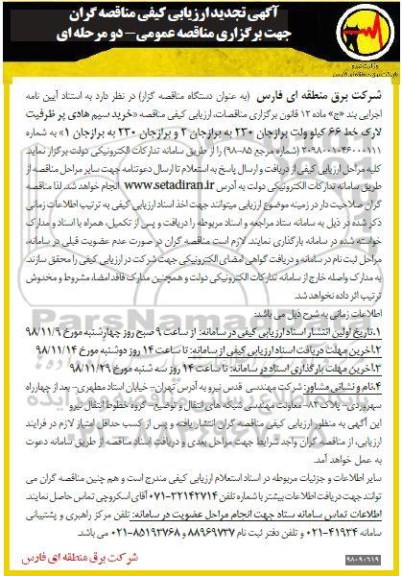 آگهی تجدید ارزیابی کیفی مناقصه گران
جهت برگزاری مناقصه عمومی – دو مرحله ای
وزارت نیرو
شرکت برق منطقه ای فارس
شرکت برق منطقه ای فارس (به عنوان دستگاه مناقصه گزار) در نظر دارد به استناد آیین نامه
اجرایی بند «ج» ماده ۱۲ قانون برگزاری مناقصات، ارزیابی کیفی مناقصه «خرید سیم هادی پر ظرفیت
لارک خط ۶۶ کیلو ولت برازجان ۲۳۰ به برازجان ۲ و برازجان ۲۳۰ به برازجان ۱» به شماره
۲۰۹۸۰۰۱۰۴۶۰۰۰۱۱۱ (شماره مرجع ۸۵-۹۸) را از طریق سامانه تدارکات الکترونیکی دولت برگزار نماید
کلیه مراحل ارزیابی کیفی از دریافت و ارسال پاسخ به استعلام تا ارسال دعوتنامه جهت سایر مراحل مناقصه از
طریق سامانه تدارکات الکترونیکی دولت به آدرس www.setadiran.ir انجام خواهد شد. لذا مناقصه
گران صلاحیت دار در زمینه موضوع ارزیابی میتوانند جهت اخذ اسناد ارزیابی کیفی به ترتیب اطلاعات زمانی
ذکر شده در ذیل به سامانه ستاد مراجعه و اسناد مربوطه را دریافت و پس از تکمیل، همراه با اسناد و مدارک
خواسته شده در سامانه بارگذاری نمایند. لازم است مناقصه گران در صورت عدم عضویت قبلی در سامانه،
مراحل ثبت نام در سامانه و دریافت گواهی امضای الکترونیکی جهت شرکت در ارزیابی کیفی را محقق سازند.
به مدارک واصله خارج از سامانه تدارکات الکترونیکی دولت و همچنین مدارک فاقد امضا، مشروط و مخدوش
ترتیب اثر داده نخواهد شد.
اطلاعات زمانی به شرح ذیل می باشد:
۱.تاریخ اولین انتشار اسناد ارزیابی کیفی در سامانه: از ساعت ۹ صبح روز چهارشنبه مورخ ۹۸/۱۱/۹
۲.آخرین مهلت دریافت اسناد ارزیابی کیفی از سامانه: تا ساعت ۱۴ روز دوشنبه مورخ ۹۸/۱۱/۱۴
۳.آخرین مهلت بارگذاری اسناد در سامانه: تا ساعت ۱۴ روز سه شنبه مورخ ۹۸/۱۱/۲۹
۴.نام و نشانی مشاور: شرکت مهندسی قدس نیرو به آدرس تهران- خیابان استاد مطهری- بعد از چهارراه
سهروردی- پلاک ۸۲- معاونت مهندسی شبکه های انتقال و توضیع- گروه خطوط انتقال نیرو
این آگهی به منظور ارزیابی کیفی مناقصه گران انتشار یافته و پس از کسب حداقل امتیاز لازم در فرایند
ارزیابی، از مناقصه گران واجد شرایط جهت مراحل بعدی و دریافت اسناد مناقصه از طریق سامانه دعوت
به عمل خواهد آمد.
سایر اطلاعات و جزئیات مربوطه در اسناد استعلام ارزیابی کیفی مندرج است و هم چنین مناقصه گران می
توانند جهت دریافت اطلاعات بیشتر با شماره تلفن ۳۲۱۴۲۷۱۴-۰۷۱ آقای اسکروچی تماس حاصل نمایند.
اطلاعات تماس سامانه ستاد جهت انجام مراحل عضویت در سامانه: تلفن مرکز راهبری و پشتیبانی
سامانه ۴۱۹۳۴-۰۲۱ و تلفن دفتر ثبت نام ۸۸۹۶۹۷۳۷ و ۸۵۱۹۳۷۶۸-۰۲۱ می باشد.
۹۸۰۹۰۶۱۹
شرکت برق منطقه ای فارس